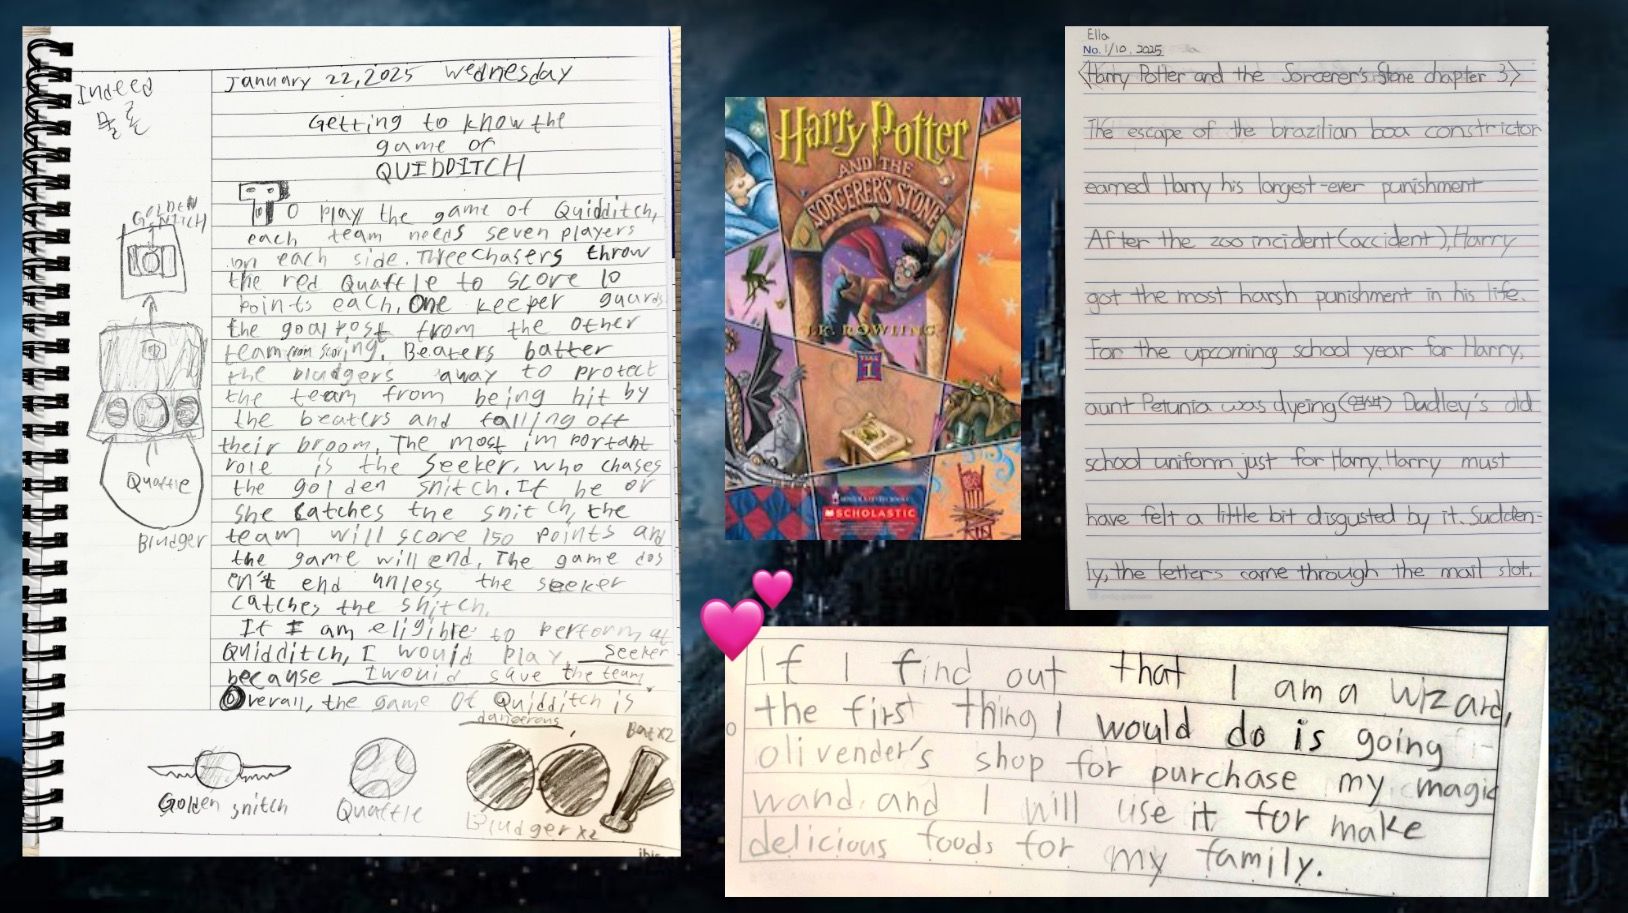 Indeed
January 22, 2025 Wednesday
Getting to know the
game of
QUIDDITCH
GOLDEN
SNITCH
Quaffle
Bludger
To play the game of Quidditch,
each team needs seven players
on each side. Three chasers throw
the red Quaffle to score 10
points each. One keeper guards
the goalpost from the other
team from scoring. Beaters batter
the bludgers away to protect
the team from being hit by
the beaters and falling off
their broom. The most important
role is the Seeker, who chases
the golden snitch. If he or
she catches the snitch, the
team will score 150 points and
the game will end. The game dos
en't end unless the seeker
catches the snitch.
If I am eligible to perform at
Quidditch, I would play Seeker
because I would save the team.
Overall, the game of Quidditch is
dangerous.
Golden snitch
Quaffle
Bludger x2
Bat x2
Harry Potter
AND THE
SORCERER'S STONE
J.K. ROWLING
YEAR
1
SCHOLASTIC
Ella
No. 1/10, 2025
<Harry Potter and the Sorcerer's Stone chapter 3>
The escape of the brazilian boa constrictor
earned Harry his longest-ever punishment
After the zoo incident(accident), Harry
got the most harsh punishment in his life.
For the upcoming school year for Harry,
aunt Petunia was dyeing(염색) Dudley's old
school uniform just for Harry. Harry must
have felt a little bit disgusted by it. Sudden-
ly, the letters came through the mail slot.
If I find out that I am a wizard,
the first thing I would do is going
olivender's shop for purchase my magic
wand. and I will use it for make
delicious foods for my family.